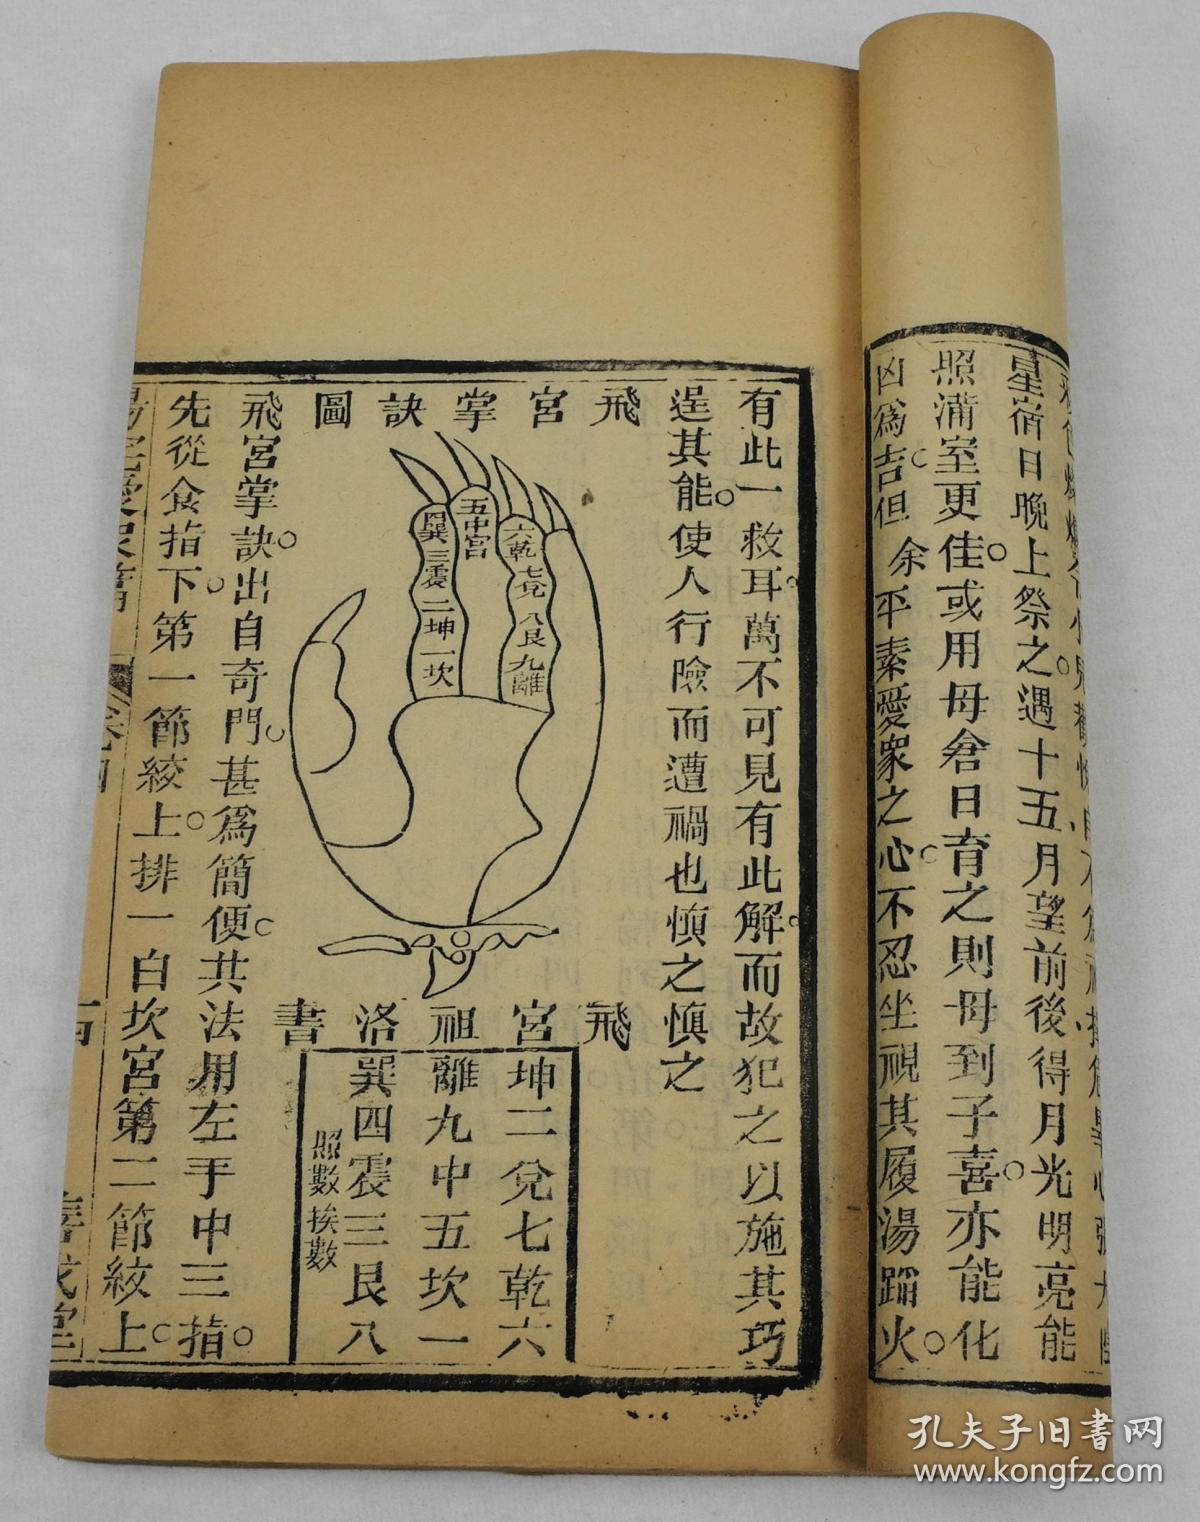 星宿日晚上祭之遇十五月望前後得月光明亮能
照滿室更佳或用母倉日育之則母到子喜亦能化
凶爲吉但余平素愛衆之心不忍坐視其履湯蹈火
有此一救耳萬不可見有此解而故犯之以施其巧
逞其能使人行險而遭禍也愼之愼之
飛宮掌訣圖
四巽三震二坤一坎
五中宮
六乾七兌八艮九離
飛宮祖洛書
坤二兌七乾六
離九中五坎一
巽四震三艮八
照數挨數
飛宮掌訣出自奇門甚爲簡便其法用左手中三指
先從食指下第一節紋上排一白坎宮第二節紋上
陽宅愛衆篇
卷四
善成堂
孔夫子旧書网
www.kongfz.com